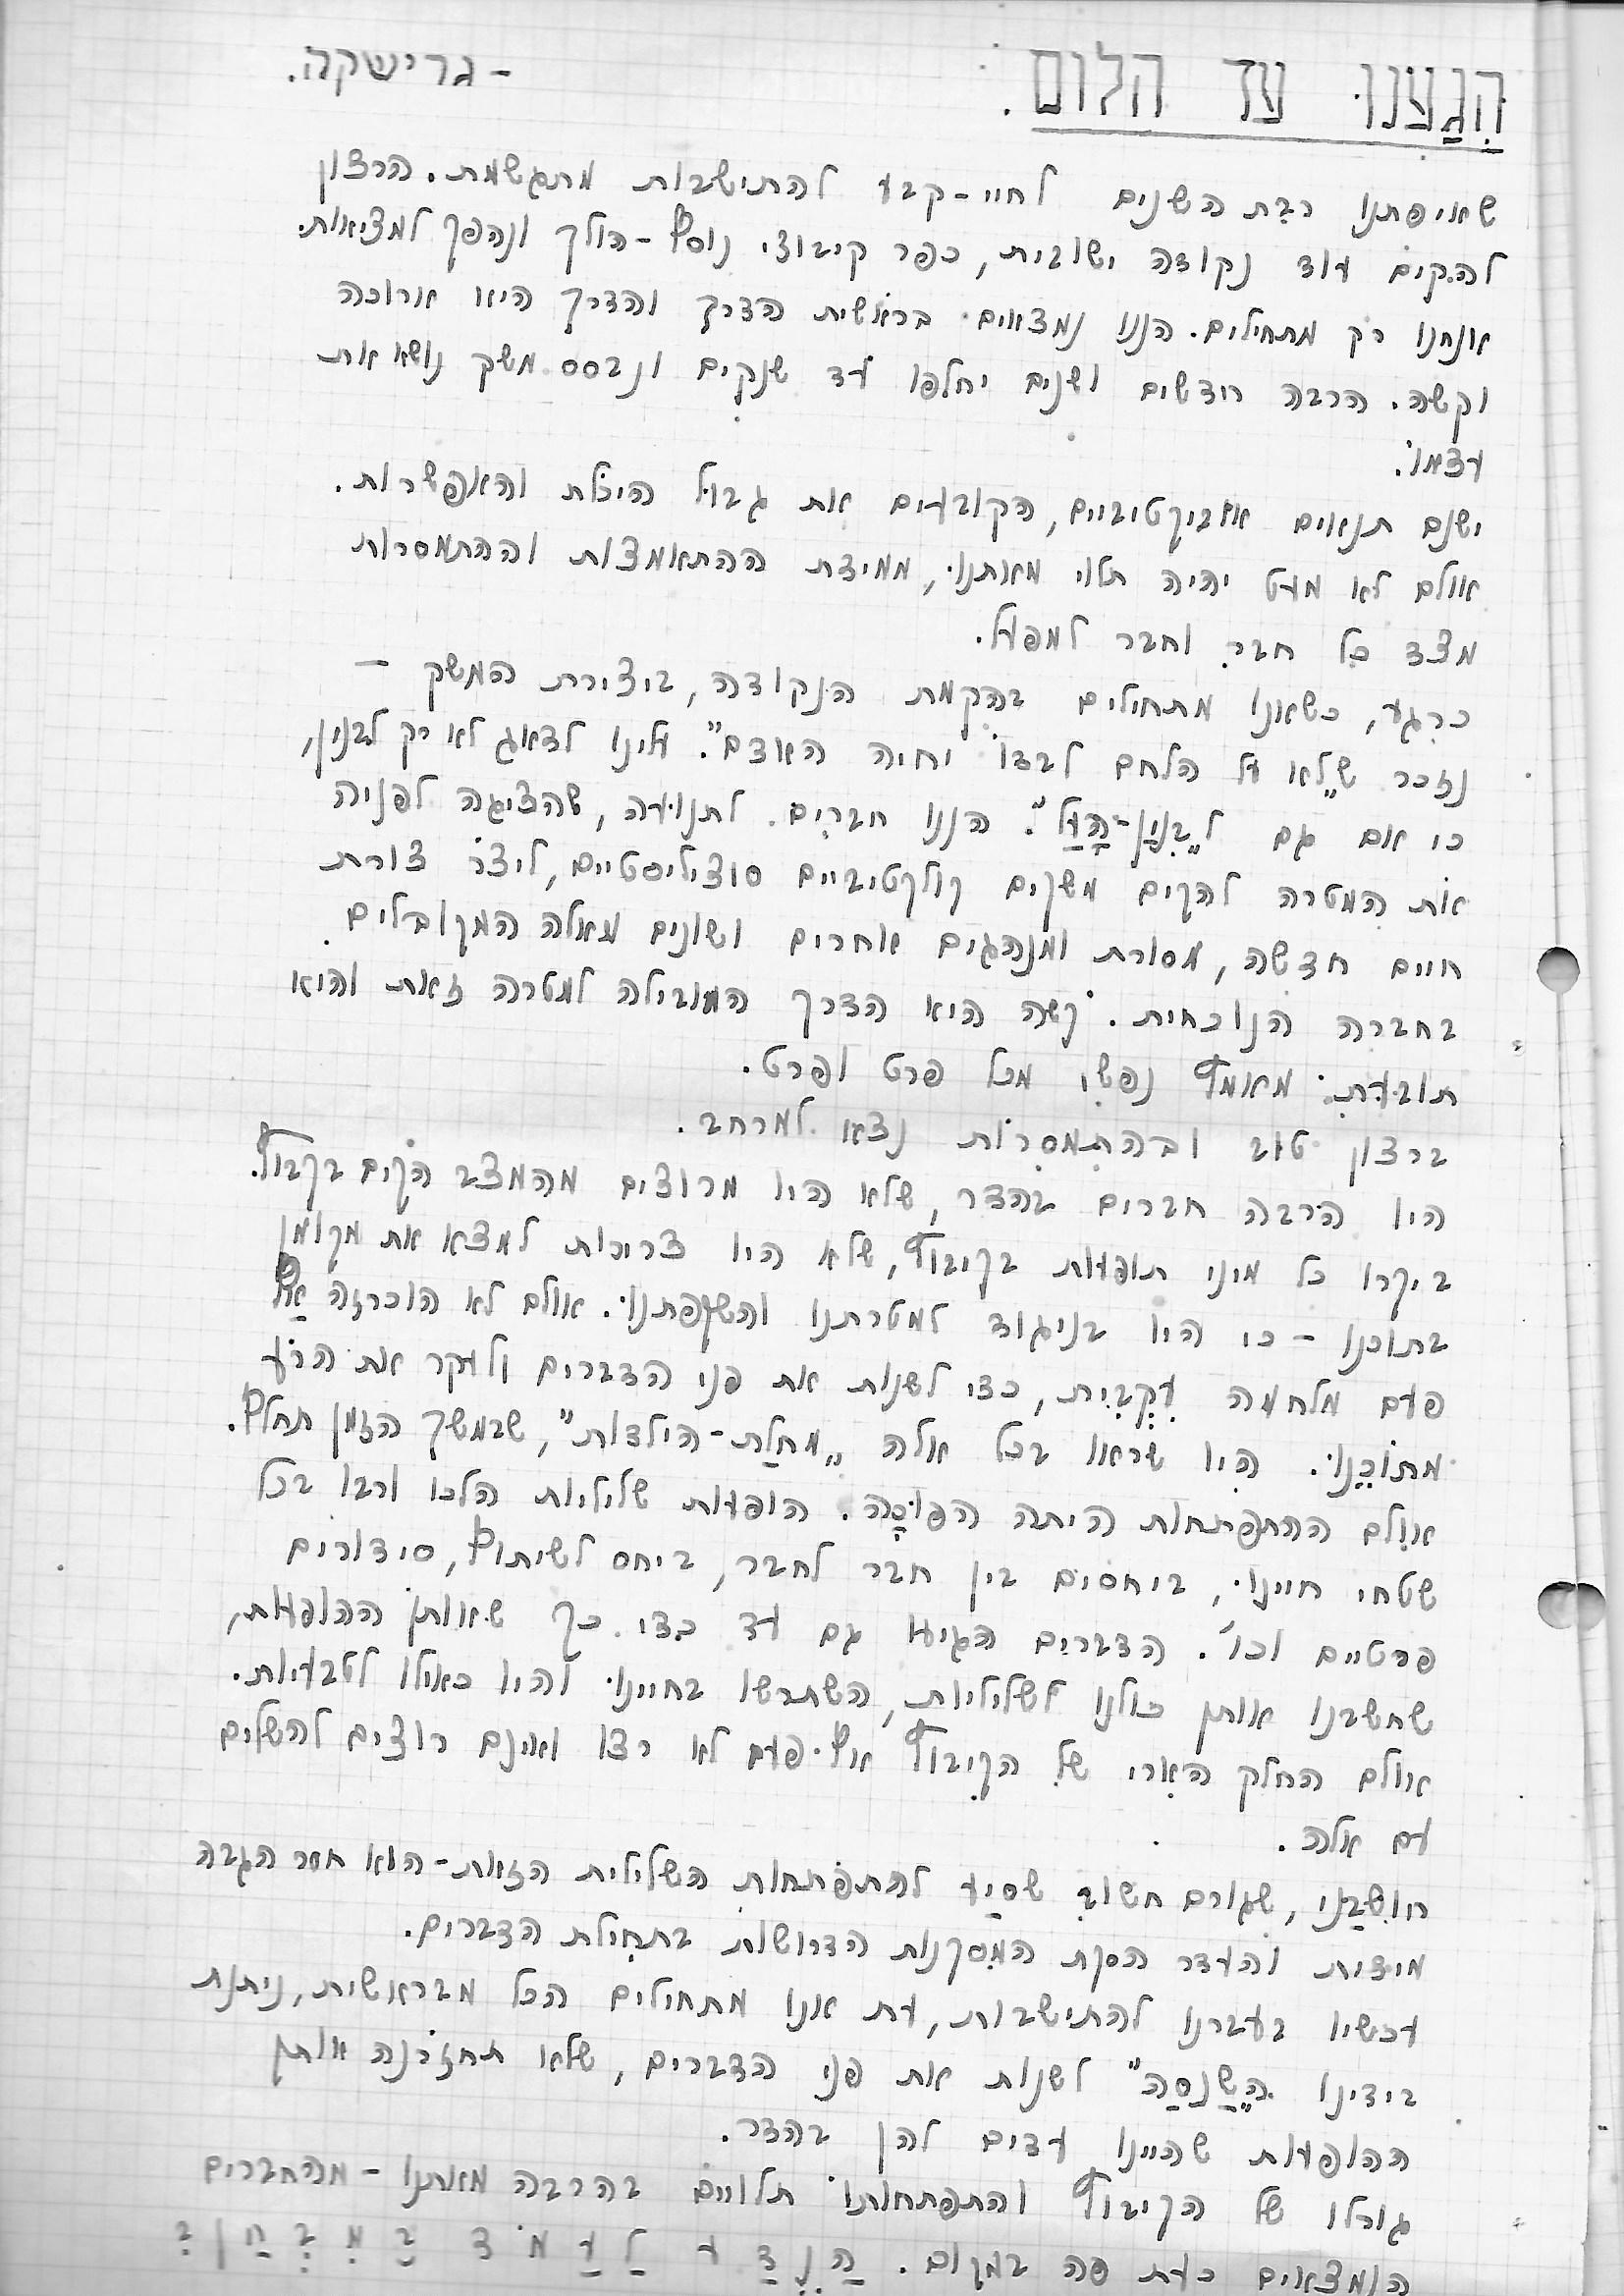 הִגַּעְנוּ עַד הלום. - גרישקה.
שאיפתנו רבת השנים לחיי-קבע להתישבות מתגשמת. הרצון
להקים עוד נקודה ישובית, כפר קיבוצי נוסף-הולך ונהפך למציאות.
אנחנו רק מתחילים. הננו נמצאים בראשית הדרך והדרך היא ארוכה
וקשה. הרבה חודשים ושנים יחלפו עד שנקים ונבסס משק נושא את
עצמו.
ישנם תנאים אוביקטיביים, הקובעים את גבול היכולת והאפשרות.
אולם לא מעט יהיה תלוי מאתנו, ממידת ההתאמצות וההתמסרות
מצד כל חבר וחבר למפעל.
כרגע, כשאנו מתחילים בהקמת הנקודה, ביצירת המשק –
נזכר ש„לא על הלחם לבדו יחיה האדם". עלינו לדאוג לא רק לבנין,
כי אם גם ל„בִּנְיַן-הָעַל". הננו חברים לתנועה, שהציגה לפניה
את המטרה להקים משקים קולקטיביים סוציליסטיים, ליצר צורת
חיים חדשה, מסורת ומנהגים אחרים ושונים מאלה המקובלים
בחברה הנוכחית. קשה היא הדרך המובילה למטרה זאת והיא
תובעת מאמץ נפשי מכל פרט ופרט.
ברצון טוב ובהתמסרות נצא למרחב.
היו הרבה חברים בהדר, שלא היו מרוצים מהמצב הקים בקבוץ.
ביקרו כל מיני תופעות בקיבוץ, שלא היו צריכות למצא את מקומן
בתוכנו - כי היו בניגוד למטרתנו והשקפתנו. אולם לא הוכרזה אַף
פעם מלחמה עִקְבִית, כדי לשנות את פני הדברים ולעקר את הרע
מתוכֵנו. היו שראו בכל אלה „מחלַת-הילדות", שבמשך הזמן תחלף.
אולם ההתפתחות היתה הפוּכָה. הופעות שליליות הלכו ורבו בכל
שטחי חיינו, ביחסים בין חבר לחבר, ביחס לשיתוף, סידורים
פרטיים וכו'. הדברים הגיעו גם עד כדי כך שאותן ההופעות,
שחשבנו אותן כולנו לשליליות, השתרשו בחיינו והיו כאילו לטבעיות.
אולם החלק הארי של הקיבוץ אף פעם לא רצו ואינם רוצים להשלים
עם אלה.
חושבַני, שגורם חשוב שסִיַע להתפתחות השלילית הזאת-הוא חסר הגבה
מידית והעדר הסקת המסקנות הדרושות בתחילת הדברים.
עכשיו בעברנו להתישבות, עת אנו מתחילים הכל מבראשית, ניתנת
בידינו „הַשַנסַה" לשנות את פני הדברים, שלא תחזרנה אותן
ההופעות שהיינו עדים להן בהדר.
גורלו של הקיבוץ והתפתחותו תלויים בהרבה מאתנו - מהחברים
הנמצאים כעת פה במקום. הֲנֵדַע לַעֲמֹד בַּמִּבְחָן?